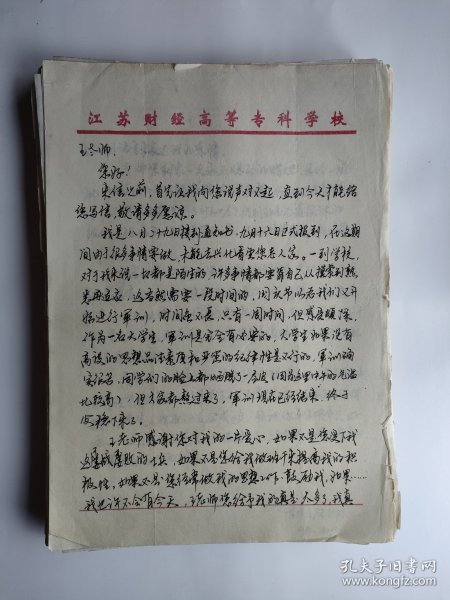 江苏财经高等专科学校
王老师:
您好!
来信之前,首先让我向您说声对不起,直到今天才能给
您写信,敬请多多原谅。
我是八月二十九日接到通知书,九月十六日正式报到,在这期
间由于很多事情要做,未能去兴化看望您老人家。一到学校,
对于我来说一切都是陌生的,许多事情都要靠自己从摸索到熟
悉再适应,这当然需要一段时间的,国庆节以后我们又开
始进行军训,时间虽不长,只有一周时间,但
作为一名大学生,军训是完全有必要的,大学生如果没有
高度的思想品法素质和严密的纪律性是不行的,军训确
实很苦,同学们的脸上都晒脱了一层皮(因为这里中午的气温
比较高),但大家都熬过来了,军训现在已经结束,终于
安稳下来了。
王老师感谢您对我的一片爱心,如果不是您
如果不是您给我做班干来提高我的积
极性,如果不是您经常做我的思想工作,鼓励我,如果……
我也许不会有今天,王老师您给予我的真是太多了,我真
孔夫子旧书网
www.kongfz.com